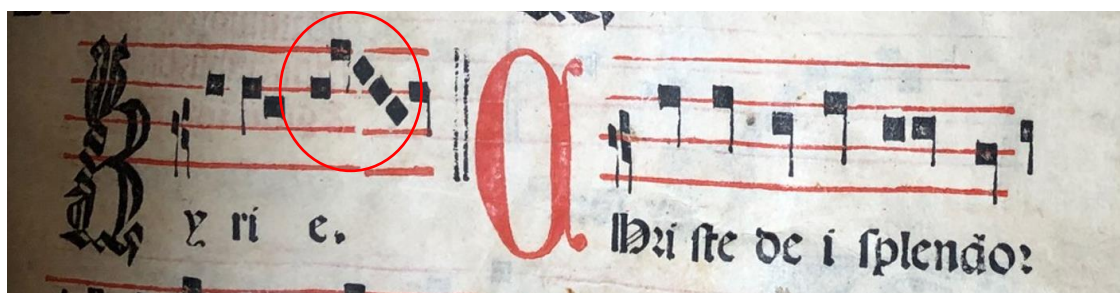 Kyrie. Christe dei splendor